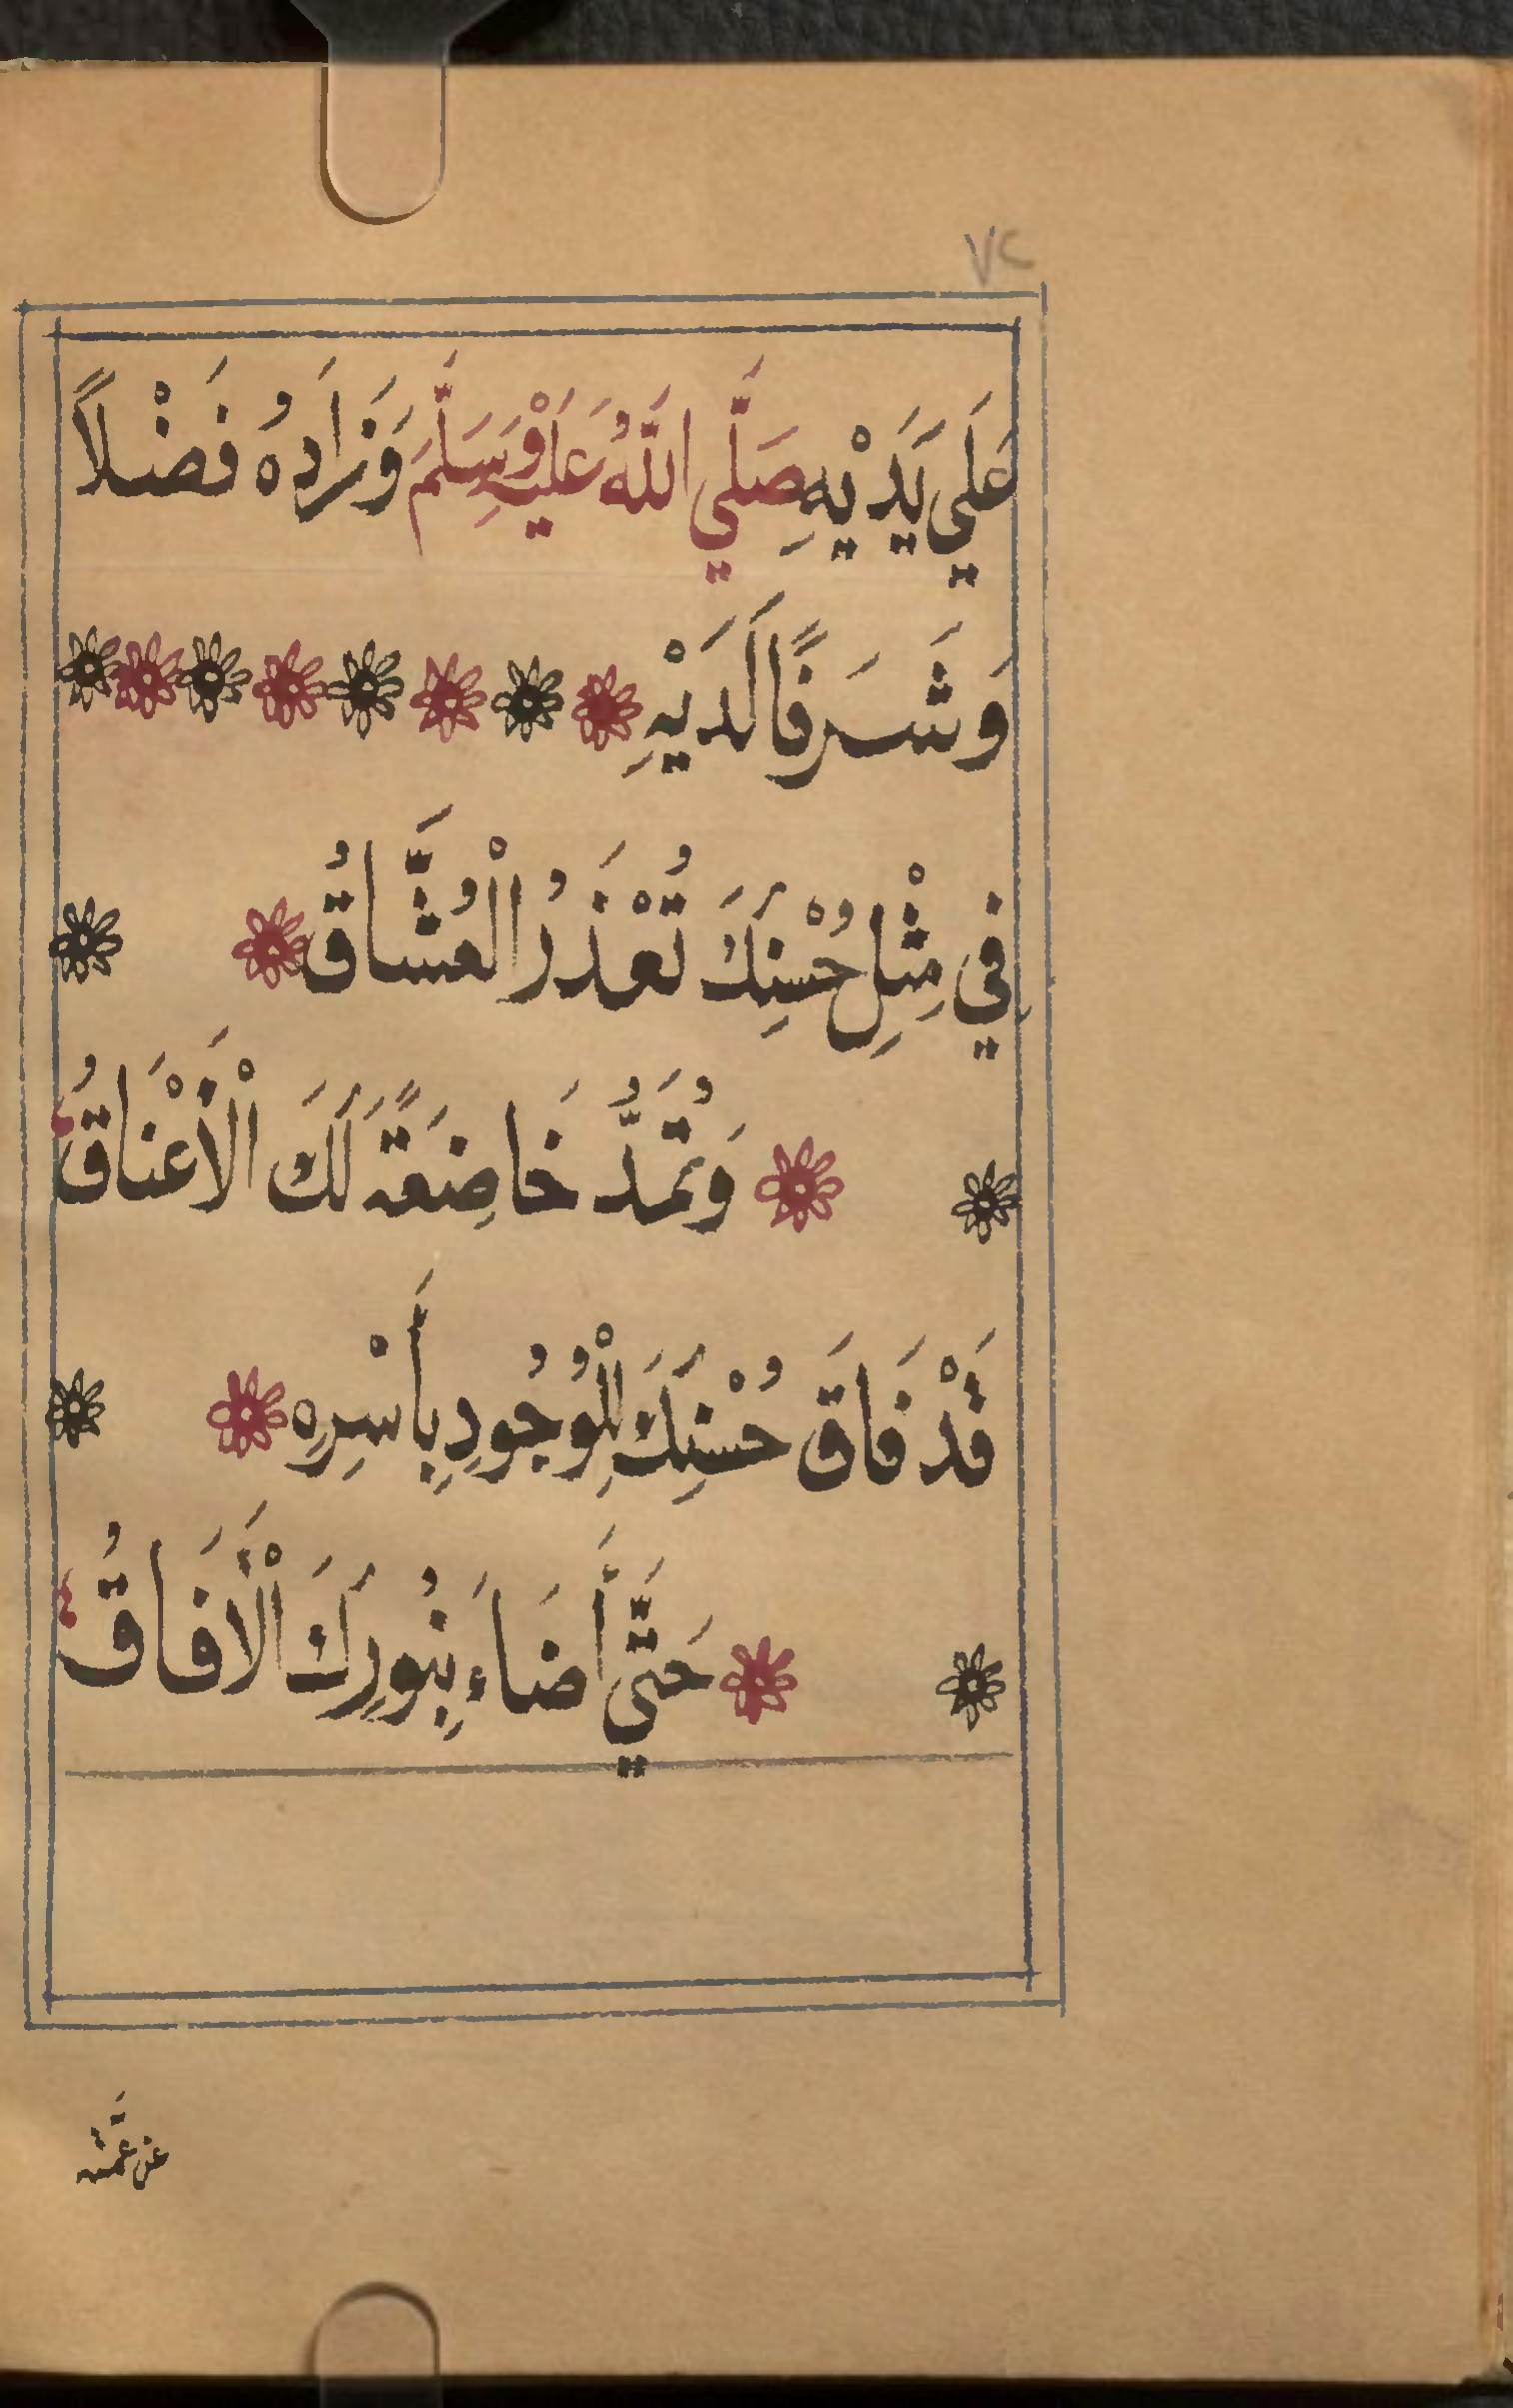 ٧٢
عَلَي يَدَيْهِ صَلَّي اللَّهُ عَلَيْهِ وَسَلَّمَ وَزَادَهُ فَضْلاً
وَشَرَفًا لَدَيْهِ
فِي مِثْلِ حُسْنِكَ تُعْذَرُ الْعُشَّاقُ
وَتُمَدُّ خَاضِعَةً لَكَ الْأَعْنَاقُ
قَدْ فَاقَ حُسْنِكَ لِلْوُجُودِ بِأَسْرِهِ
حَتَّي أَضَاءَ بِنُورِكَ الْأَفَاقُ